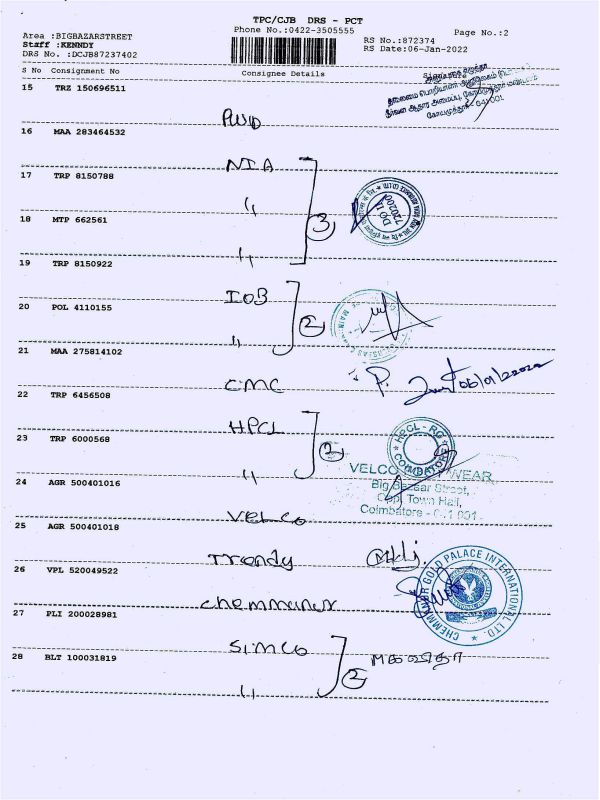 TPC/CJB DRS - PCT
Phone No.:0422-3505555
Page No.:2
Area :BIGBAZARSTREET
Staff :KENNDY
DRS No. :DCJB87237402
RS No.:872374
RS Date:06-Jan-2022
S No Consignment No Consignee Details
15 TRZ 150696511
PWD
16 MAA 283464532
NIA
17 TRP 8150788
〃
3
18 MTP 662561
〃
19 TRP 8150922
IOB
20 POL 4110155
2
〃
21 MAA 275814102
CMC
P.
06/01/2022
22 TRP 6456508
HPCL
23 TRP 6000568
2
HPCL - RO
COIMBATORE
〃
24 AGR 500401016
VELCO WEAR
Big Bazaar Street,
Opp. Town Hall,
Coimbatore - 641 001.
VELCO
25 AGR 500401018
Trendy
26 VPL 520049522
CHEMMANUR GOLD PALACE INTERNATIONAL LTD.
chemmanur
27 PLI 200028981
SIMCO
28 BLT 100031819
2
〃